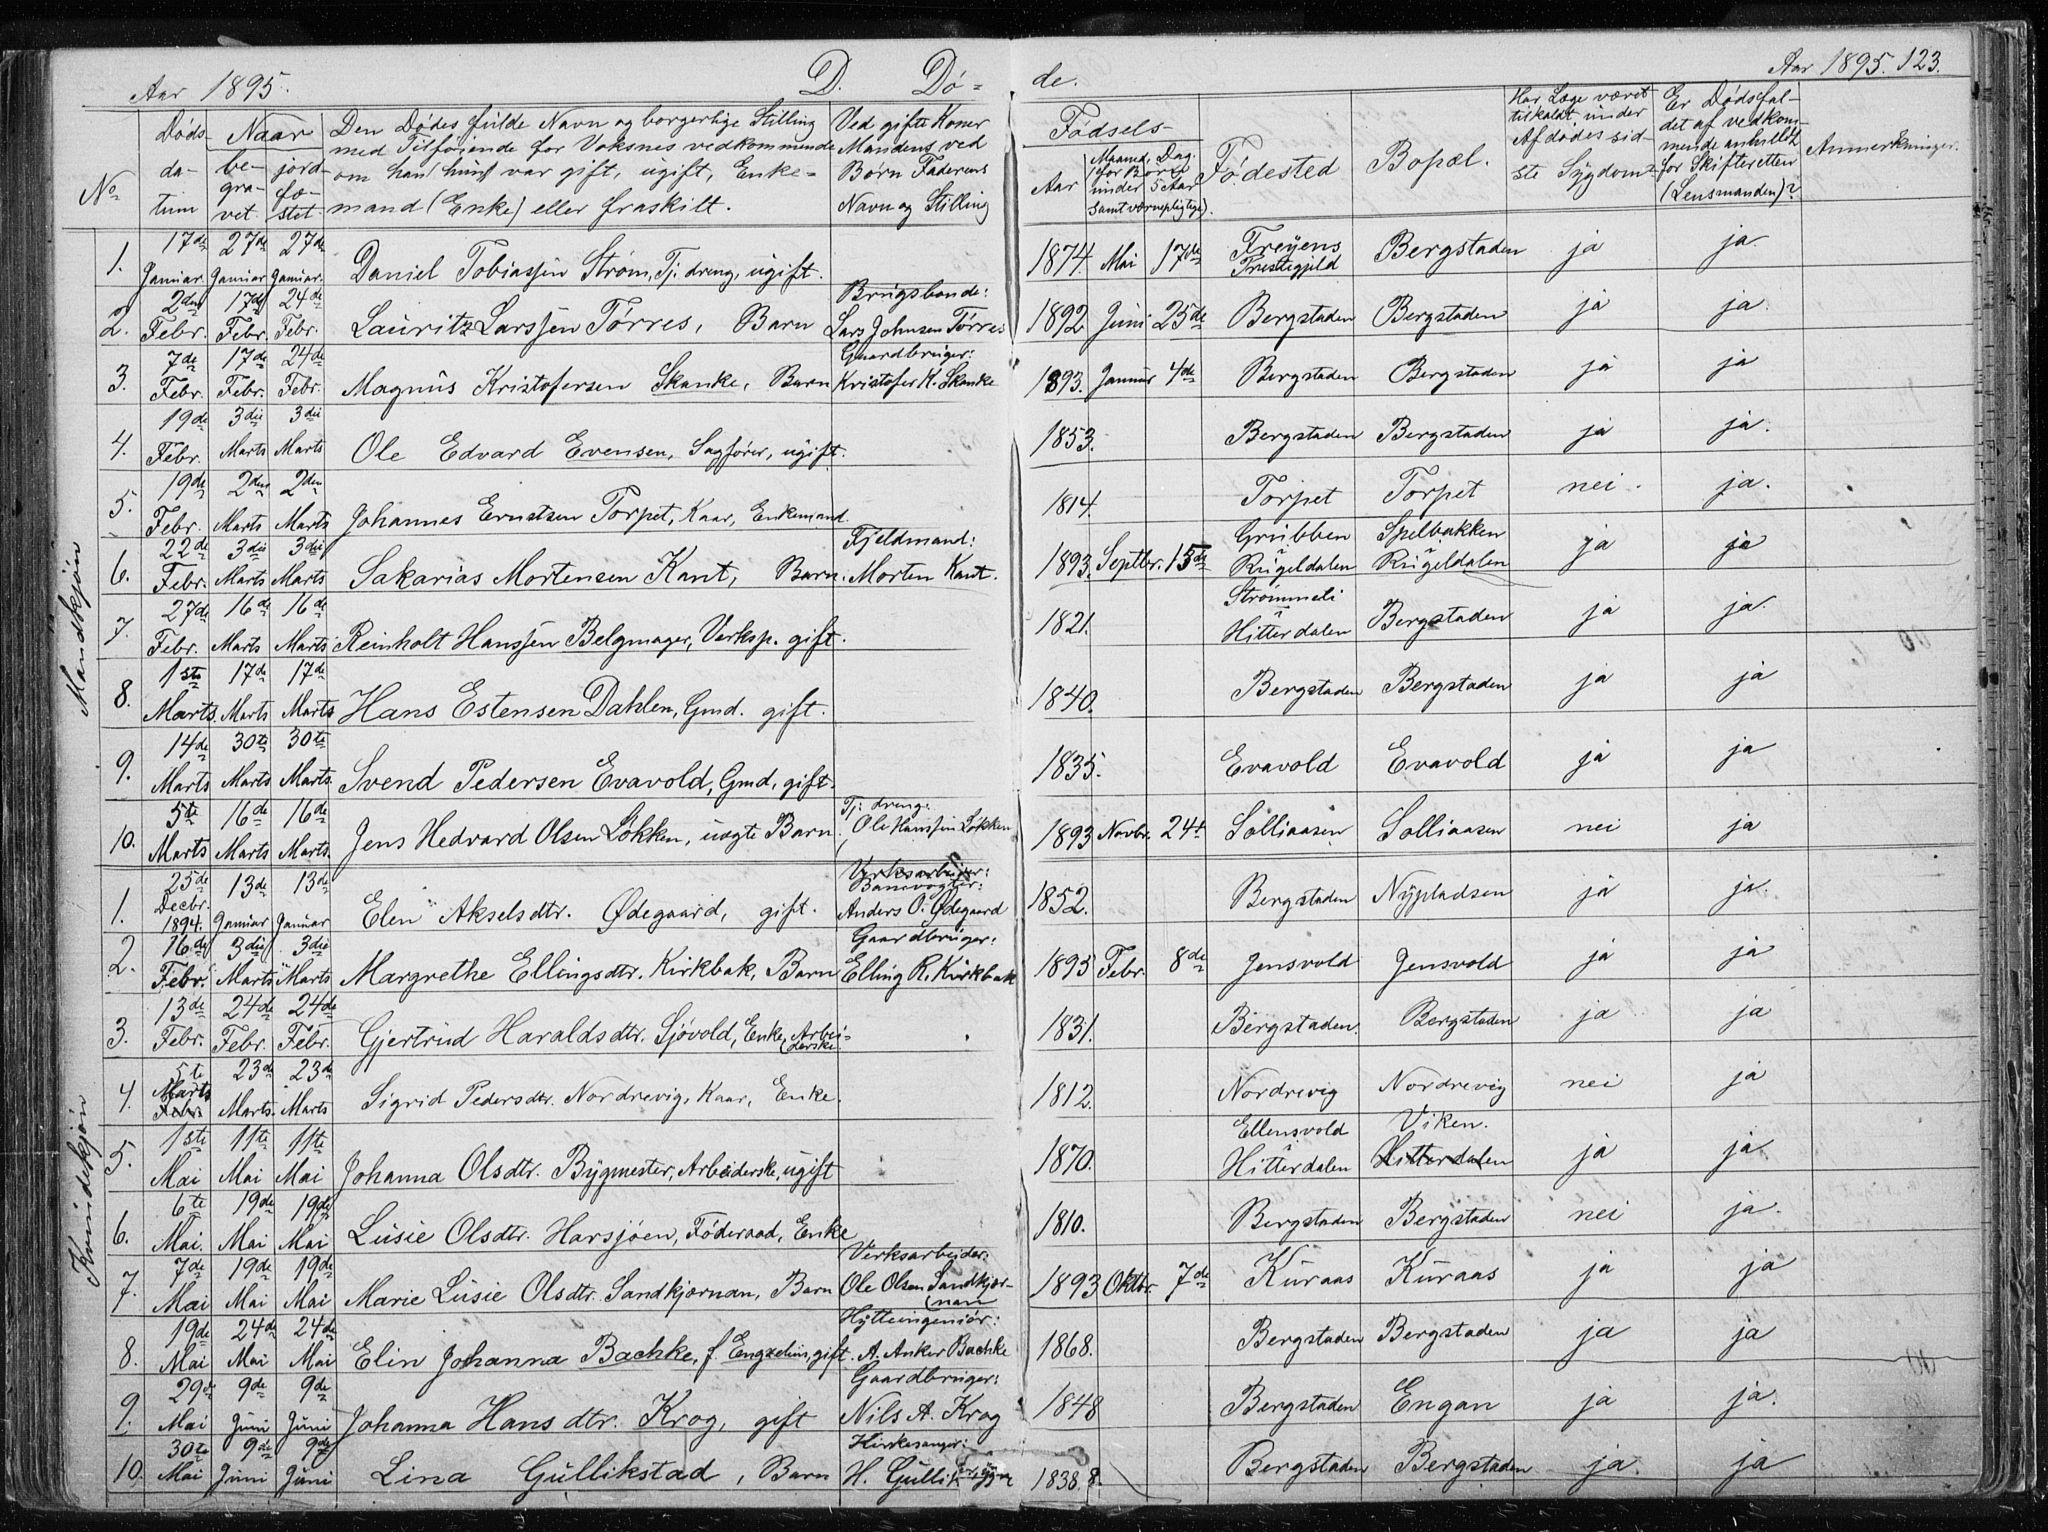 Aar 1895. D. Dö= de. Aar 1895. 123.
No
Døds-
da-
tum
Naar
be-
gra-
vet.
jord-
fæ-
stet.
Den Dödes fulde Navn og borgerlige Stilling
med Tilføiende for Voksnes vedkommende
om han (hun) var gift, ugift, Enke=
mand (Enke) eller fraskilt.
Ved gifte Koner
Mandens ved
Børn Faderens
Navn og Stilling
Fødsels-
Aar
Maaned, Dag.
(for Børn
under 5 Aar
samt værnepligtige).
Fødested
Bopæl.
Har Læge været
tilkaldt under
Afdødes sid-
ste Sygdom?
Er Dødsfal-
det af vedkom-
mende anmeldt
for Skifteretten
(Lensmanden)?
Anmerkninger.
Mandkjøn
1. 17de Januar 27de Januar 27de Januar. Daniel Tobiassen Strøm, Tj. dreng, ugift. 1874. Mai 17de Freyens Præstegjild Bergstaden ja ja.
2. 2den Febr. 17de Febr. 24de Febr. Lauritz Larssen Törres, Barn Brugsbonde: Lars Johnsen Törres 1892 Juni 25de Bergstaden Bergstaden ja ja.
3. 7de Febr. 17de Febr. 24de Febr. Magnus Kristofersen Skanke, Barn Gaardbruger: Kristofer K. Skanke 1893. Januar 4de Bergstaden Bergstaden ja ja
4. 19de Febr. 3die Marts 3die Marts Ole Edvard Evensen, Sagfører, ugift. 1853. Bergstaden Bergstaden ja ja.
5. 19de Febr. 2den Marts 2den Marts Johannes Erntsen Torpet, Kaar, Enkemand. 1814. Torpet Torpet nei. ja.
6. 22de Febr. 3die Marts 3die Marts Sakarias Mortensen Kant, Barn. Fjeldmand: Morten Kant. 1893. Septbr. 15de Grubben i Rugeldalen Spelbakken i Rugeldalen ja ja
7. 27de Febr. 16de Marts 16de Marts Reinholt Hanssen Belgmager, Verksp. gift. 1821. Strømmeli i Hitterdalen Bergstaden ja ja.
8. 1ste Marts. 17de Marts 17de Marts Hans Estensen Dahlen, Gmd. gift. 1840. Bergstaden Bergstaden ja ja
9. 14de Marts 30te Marts 30te Marts. Svend Pedersen Evavold, Gmd, gift. 1835. Evavold Evavold ja ja
10. 5te Marts 16de Marts 16de Marts. Jens Hedvard Olsen Lökken, uægte Barn Tj. dreng: Ole Hanssen Lökken 1893 Novbr. 24d Solliaasen Solliaasen nei ja
Kvindekjøn
1. 25de Decbr. 1894. 13de Januar 13de Januar Elen Akselsdtr. Ødegaard, gift. Verksarbeider: Banevogter: Anders O. Ødegaard 1852. Bergstaden Nypladsen ja ja.
2. 16de Febr. 3die Marts 3die Marts Margrethe Ellingsdtr. Kirkbak, Barn Gaardbruger: Elling R. Kirkbak 1895 Febr. 8de Jensvold Jensvold ja ja
3. 13de Febr. 24de Febr. 24de Febr. Gjertrud Haraldsdtr. Sjövold, Enke, Arbei-(derske 1831. Bergstaden. Bergstaden ja ja
4. 5te Marts Febr. 23de Marts. 23de Marts Sigrid Pedersdtr. Nordrevig, Kaar, Enke. 1812. Nordrevig Nordrevig nei ja
5. 1ste Mai 11te Mai 11te Mai Johanna Olsdtr. Bygmester, Arbeiderske, ugift 1870. Ellensvold i Hitterdalen Viken. Hitterdalen ja ja
6. 6te Mai. 19de Mai 19de Mai Lusie Olsdtr. Harsjøen, Föderaad, Enke 1810. Bergstaden Bergstaden nei ja.
7. 7de Mai 19de Mai 19de Mai Marie Lusie Olsdtr. Sandkjernan, Barn Verksarbeider: Ole Olsen Sandkjer-(nan 1893 Oktbr. 7de Kuraas Kuraas ja ja
8. 19de Mai 24de Mai 24de Mai Elin Johanna Bachke, f. Engzelius, gift. Hytteingeniör: A. Anker Bachke 1868. Bergstaden Bergstaden ja ja
9. 29de Mai 9de Juni 9de Juni Johanna Hansdtr. Krog, gift Gaardbruger: Nils A. Krog 1848 Bergstaden Engan ja ja.
10. 30te Mai 9de Juni 9de Juni Lina Gullikstad, Barn Kirkesanger: H. Gullik 1838. 8. Bergstaden Bergstaden ja. ja